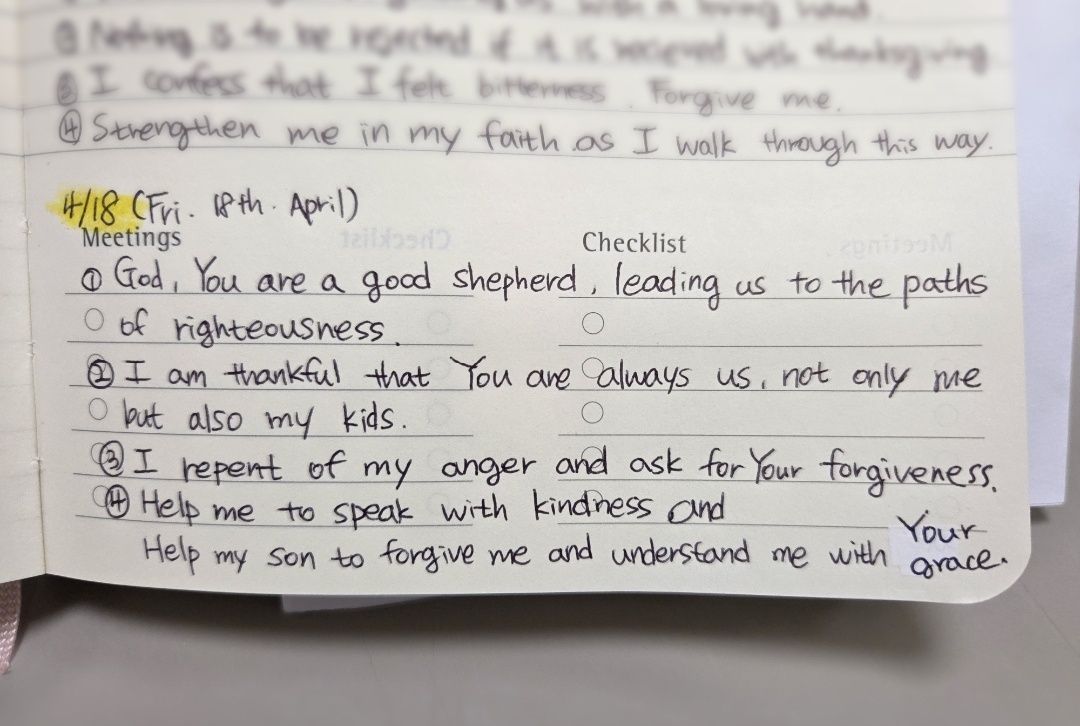 with a loving hand.
② Nothing is to be rejected if it is recieved with thanksgiving
③ I confess that I felt bitterness. Forgive me.
④ Strengthen me in my faith as I walk through this way.
4/18 (Fri. 18th. April)
Meetings Checklist
① God, You are a good shepherd, leading us to the paths
of righteousness.
② I am thankful that You are always us, not only me
but also my kids.
③ I repent of my anger and ask for Your forgiveness.
④ Help me to speak with kindness and
Help my son to forgive me and understand me with Your grace.